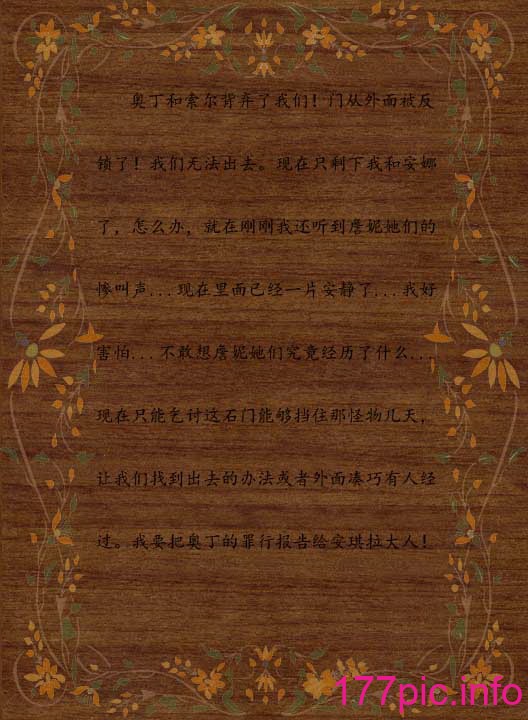 奥丁和索尔背弃了我们！门从外面被反
锁了！我们无法出去。现在只剩下我和安娜
了，怎么办，就在刚刚我还听到詹妮她们的
惨叫声...现在里面已经一片安静了...我好
害怕...不敢想詹妮她们究竟经历了什么...
现在只能乞讨这石门能够挡住那怪物几天，
让我们找到出去的办法或者外面凑巧有人经
过。我要把奥丁的罪行报告给安琪拉大人！
177pic.info